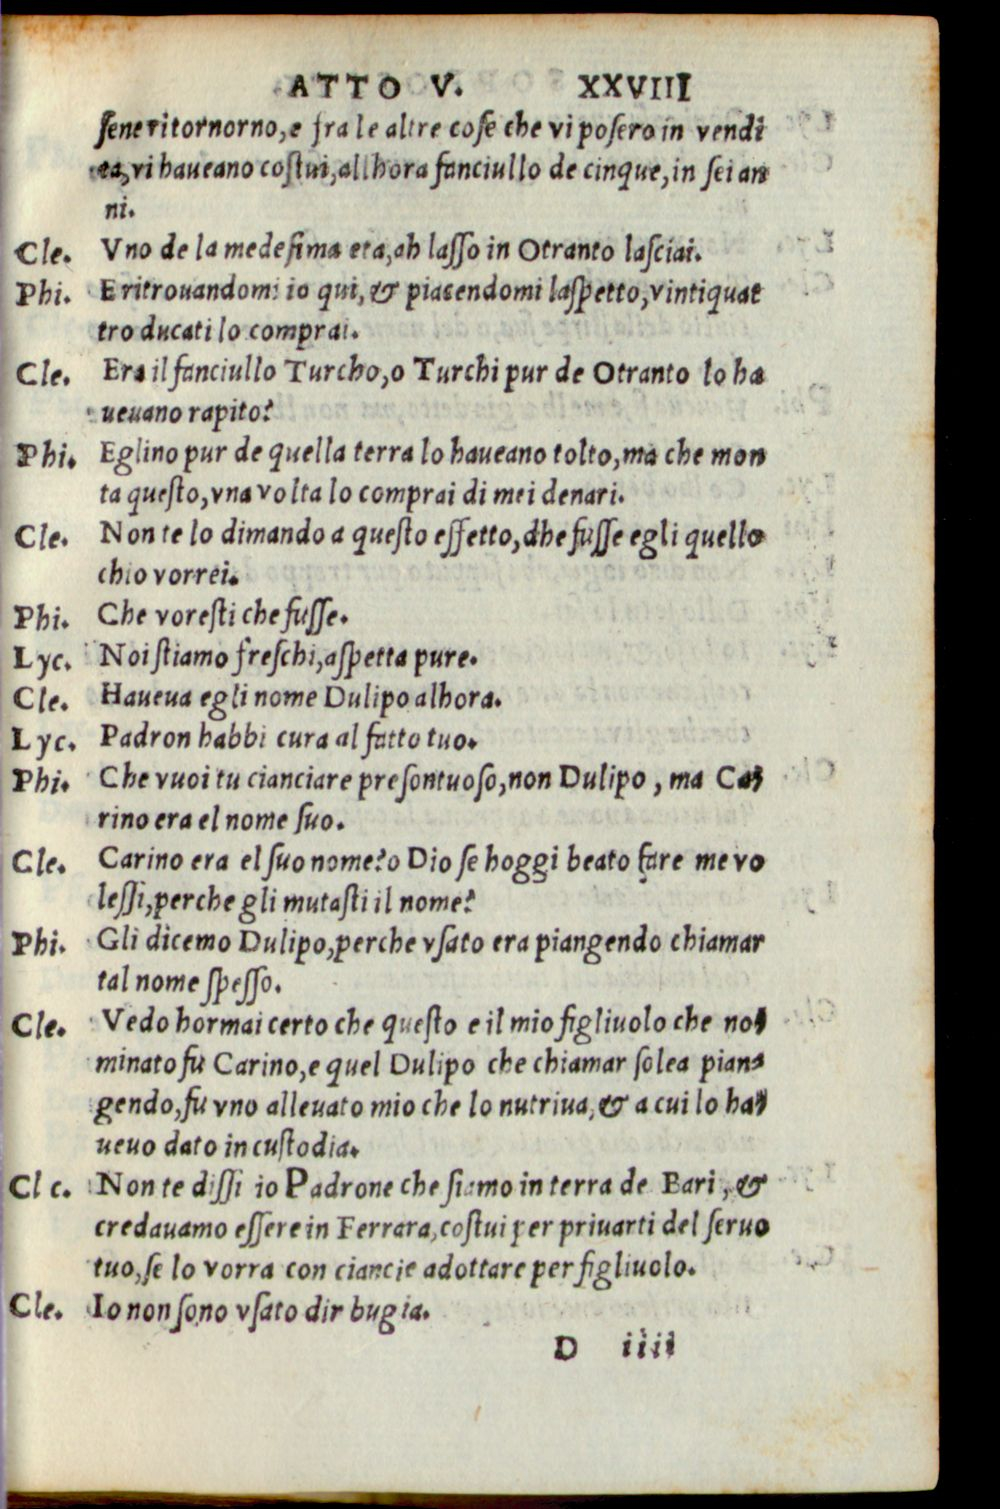 ATTO V. XXVIII
ſene ritornorno, e fra le altre coſe che vi poſero in vendi
ta, vi haueano coſtui, allhora fanciullo de cinque, in ſei an
ni.
Cle. Vno de la medeſima eta, ah laſſo in Otranto laſciai.
Phi. E ritrouandomi io qui, & piacendomi laſpetto, vintiquat
tro ducati lo comprai.
Cle. Era il fanciullo Turcho, o Turchi pur de Otranto lo ha
ueuano rapito?
Phi. Eglino pur de quella terra lo haueano tolto, ma che mon
ta queſto, vna volta lo comprai di mei denari.
Cle. Non te lo dimando a queſto effetto, dhe fuſſe egli quello
chio vorrei.
Phi. Che voreſti che fuſſe.
Lyc. Noi ſtiamo freſchi, aſpetta pure.
Cle. Haueua egli nome Dulipo alhora.
Lyc. Padron habbi cura al fatto tuo.
Phi. Che vuoi tu cianciare preſontuoſo, non Dulipo, ma Ca
rino era el nome ſuo.
Cle. Carino era el ſuo nome? o Dio ſe hoggi beato fare me vo
leſſi, perche gli mutaſti il nome?
Phi. Gli dicemo Dulipo, perche vſato era piangendo chiamar
tal nome ſpeſſo.
Cle. Vedo hormai certo che queſto e il mio figliuolo che no
minato fu Carino, e quel Dulipo che chiamar ſolea pian
gendo, fu vno alleuato mio che lo nutriua, & a cui lo ha
ueuo dato in cuſtodia.
Cl c. Non te diſſi io Padrone che ſiamo in terra de Bari, &
credauamo eſſere in Ferrara, coſtui per priuarti del ſeruo
tuo, ſe lo vorra con ciancie adottare per figliuolo.
Cle. Io non ſono vſato dir bugia.
D iiii